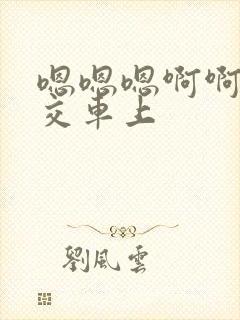 嗯嗯嗯啊啊
交车上
劉風雲